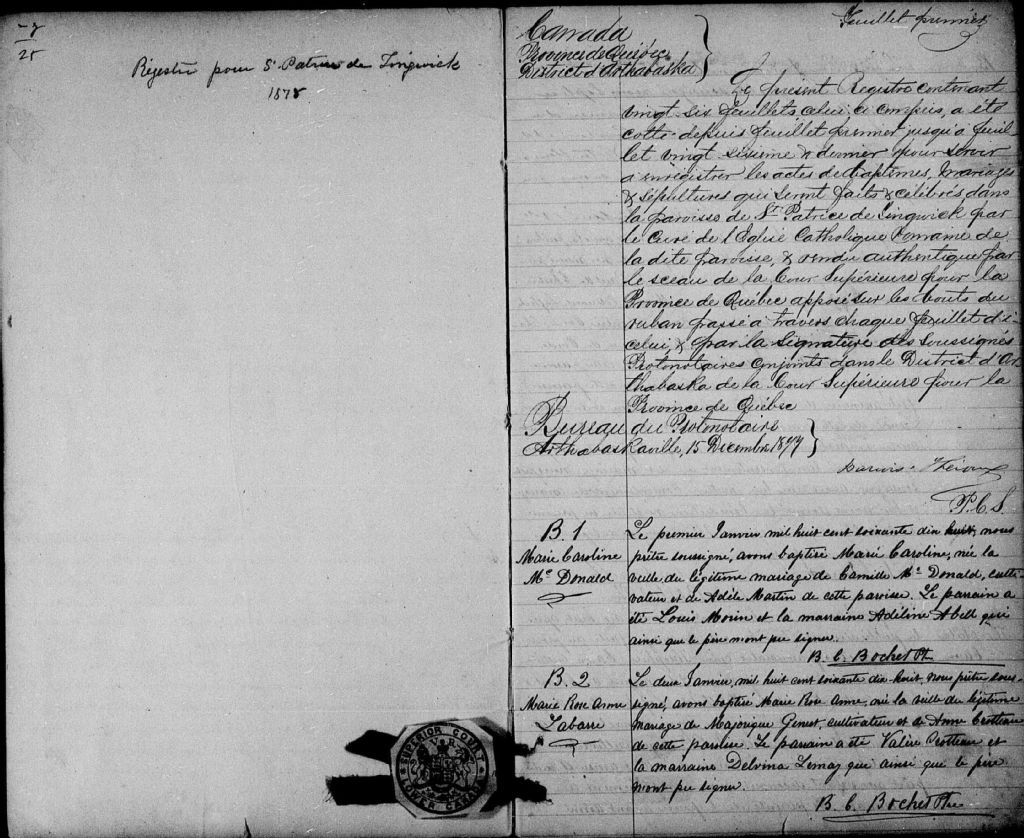 -7
25
Régistre pour St. Patrice de Lingwick
1878
Feuillet premier
Canada
Province de Québec
District d'Arthabaska
Le présent Registre contenant
vingt-six feuillets celui-ci compris, a été
cotté depuis feuillet premier jusqu'à feuil-
let vingt sixième & dernier pour servir
à enrégistrer les actes de baptêmes, mariages
& sépultures qui seront faits & célébrés dans
la paroisse de St. Patrice de Lingwick par
le Curé de l'Eglise Catholique Romaine de
la dite paroisse, & rendu authentique par
le sceau de la Cour Supérieure pour la
Province de Québec apposé sur les bouts du
ruban passé à travers chaque feuillet d'i-
celui, & par la signature des Soussignés
Protonotaires conjoints dans le District d'Ar-
thabaska de la Cour Supérieure pour la
Province de Québec
Bureau du Protonotaire
Arthabaskaville, 15 Décembre 1877
P.C.S.
B. 1
Marie Caroline
Mc Donald
Le premier Janvier mil huit cent soixante dix huit, nous
prêtre soussigné, avons baptisé Marie Caroline, née la
veille du légitime mariage de Camille Mc Donald, culti-
vateur et de Adèle Martin de cette paroisse. Le parrain a
été Louis Morin et la marraine Adéline Abell qui
ainsi que le père n'ont pu signer.
B. C. Bochet Ptre
B. 2
Marie Rose Anne
Labarre
Le deux Janvier, mil huit cent soixante dix huit, nous prêtre sous-
signé, avons baptisé Marie Rose Anne, née la veille du légitime
mariage de Majorique Genest, cultivateur et de Anne Crotteau
de cette paroisse. Le parrain a été Valère Crotteau et
la marraine Delvina Lemay qui ainsi que le père
n'ont pu signer.
B. C. Bochet Ptre
SUPERIOR COURT
V R
LOWER CANADA